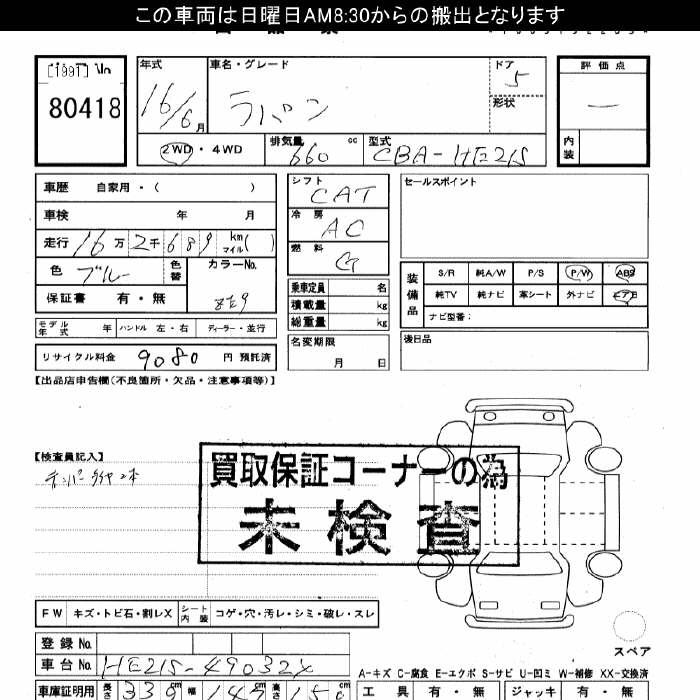 この車両は日曜日AM8:30からの搬出となります
[1991] No
80418
年式
16/6月
車名・グレード
ラパン
ドア
5
形状
評価点
内装
2WD・4WD
排気量
660 cc
型式
CBA-HE21S
車歴 自家用・( )
車検 年 月
走行 16万2千689 km マイル( )
色 ブルー
色替
カラーNo.
ZE9
保証書 有・無
モデル年式 年 ハンドル 左・右 ディーラー・並行
リサイクル料金 9080 円 預託済
シフト
CAT
冷房
AC
燃料
G
乗車定員 名
積載量 kg
総重量 kg
名変期限
月 日
セールスポイント
装備品
S/R 純A/W P/S P/W ABS
純TV 純ナビ 革シート 外ナビ エアB
ナビ型番:
後日品
【出品店申告欄(不良箇所・欠品・注意事項等)】
【検査員記入】
テンパータイヤ2本
買取保証コーナーの為
未検査
FW キズ・トビ石・割レX
シート内装 コゲ・穴・汚レ・シミ・破レ・スレ
登録No.
車台No. HE21S-490324
車庫証明用 長さ 339cm 幅 147cm 高さ 150
スペア
A-キズ C-腐食 E-エクボ S-サビ U-凹ミ W-補修 XX-交換済
工具 有・無 ジャッキ 有・無